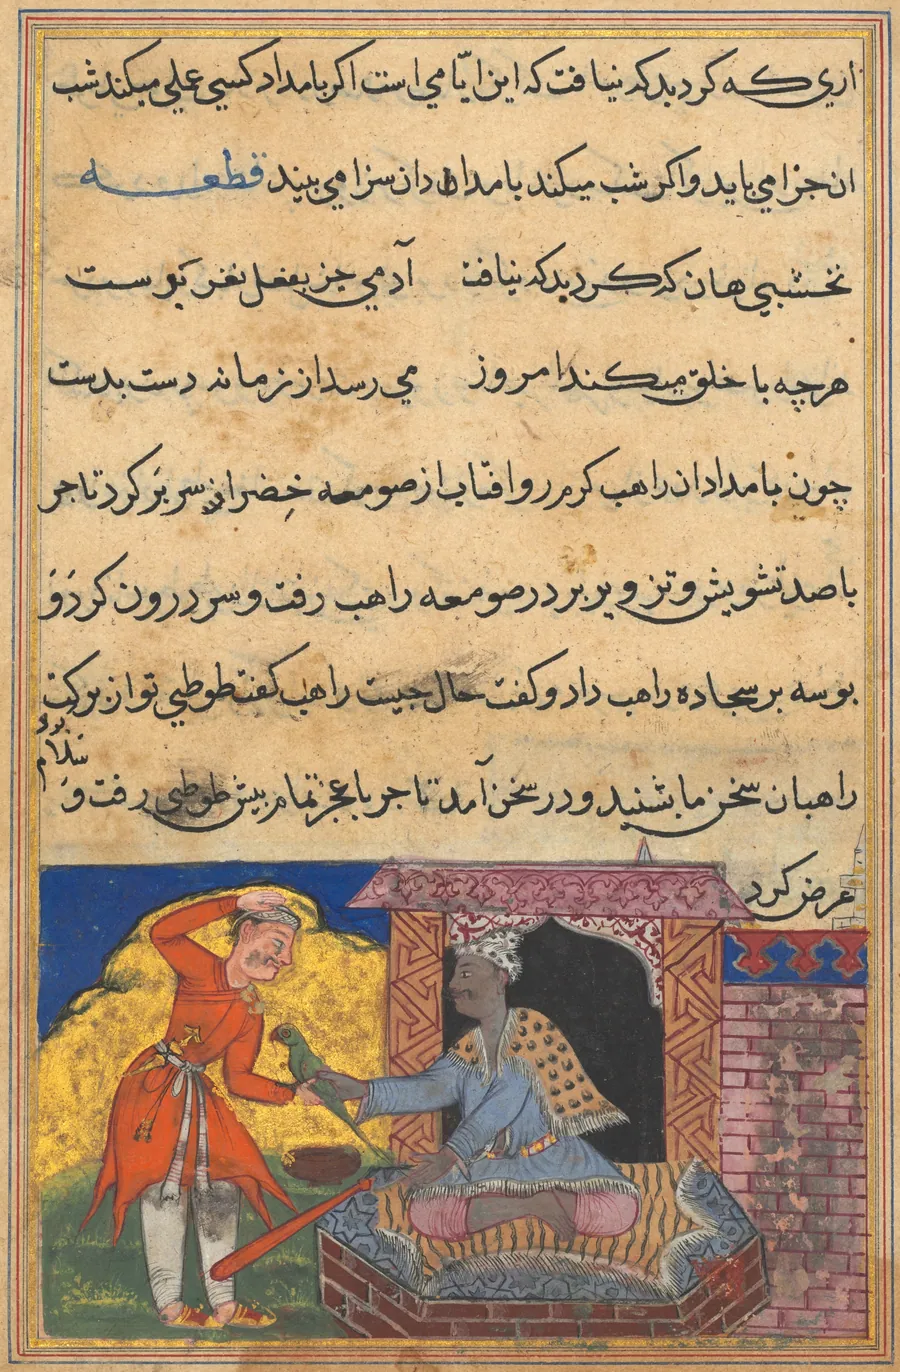 اری که کرد بد که نیافت که این ایّامی است اکر بامداد کسی عملی میکند شب
ان جزا می یابد و اکر شب میکند بامدادان سزا می بیند قطعه
نخشبی هان که کرد بد که نیافت آدمی جز بفعل نغز نو ست
هرچه با خلق میکند امروز می رسد از زمانه دست بدست
چون بامدادان راهب کرم رو افتاب از صومعه خِضرا سر بَر کرد تاجر
با صد تشویش و تزویر بر در صومعه راهب رفت و سر درون کرد وَ
بوسه بر سجاده راهب داد و کفت حال چیست راهب کفت طوطی تو از برکت
راهبان سخن ما بشنید و در سخن آمد تاجر با عجز تمام پیش طوطی رفت وَ
سَلام
عرض کرد